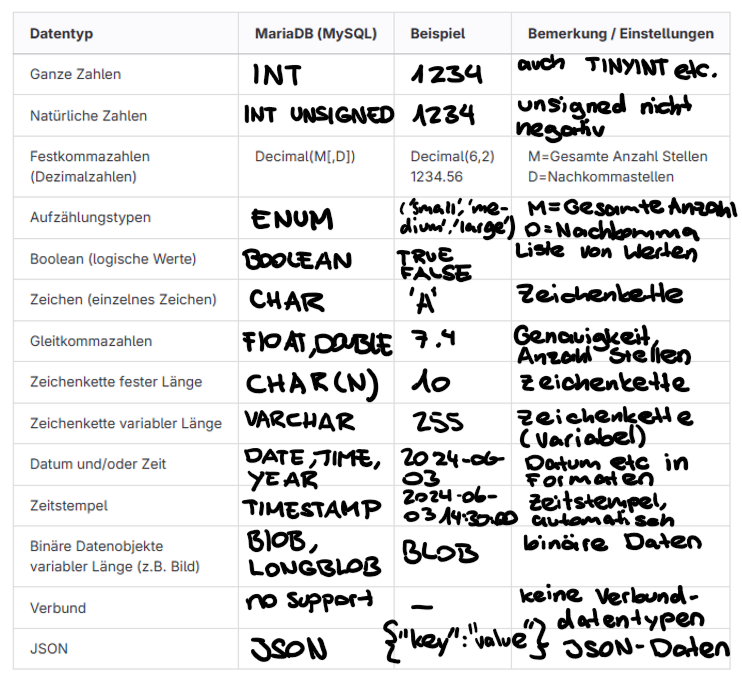 Datentyp MariaDB (MySQL) Beispiel Bemerkung / Einstellungen
Ganze Zahlen INT 1234 auch TINYINT etc.
Natürliche Zahlen INT UNSIGNED 1234 unsigned nicht
negativ
Festkommazahlen Decimal(M[,D]) Decimal(6,2) M=Gesamte Anzahl Stellen
(Dezimalzahlen) 1234.56 D=Nachkommastellen
Aufzählungstypen ENUM ('small','me- M=Gesamte Anzahl
dium','large') D=Nachkomma
Boolean (logische Werte) BOOLEAN TRUE Liste von Werten
FALSE
Zeichen (einzelnes Zeichen) CHAR 'A' Zeichenkette
Gleitkommazahlen FlOAT,DOUBLE 7.4 Genauigkeit,
Anzahl Stellen
Zeichenkette fester Länge CHAR(N) 10 zeichenkette
Zeichenkette variabler Länge VARCHAR 255 zeichenkette
(variabel)
Datum und/oder Zeit DATE,TIME, 2024-06- Datum etc in
YEAR 03 Formaten
Zeitstempel TIMESTAMP 2024-06- Zeitstempel,
03 14:30:00 automatisch
Binäre Datenobjekte BlOB, BLOB binäre Daten
variabler Länge (z.B. Bild) LONGBLOB
Verbund no support — keine Verbund-
datentypen
JSON JSON {"key":"value"} JSON-Daten